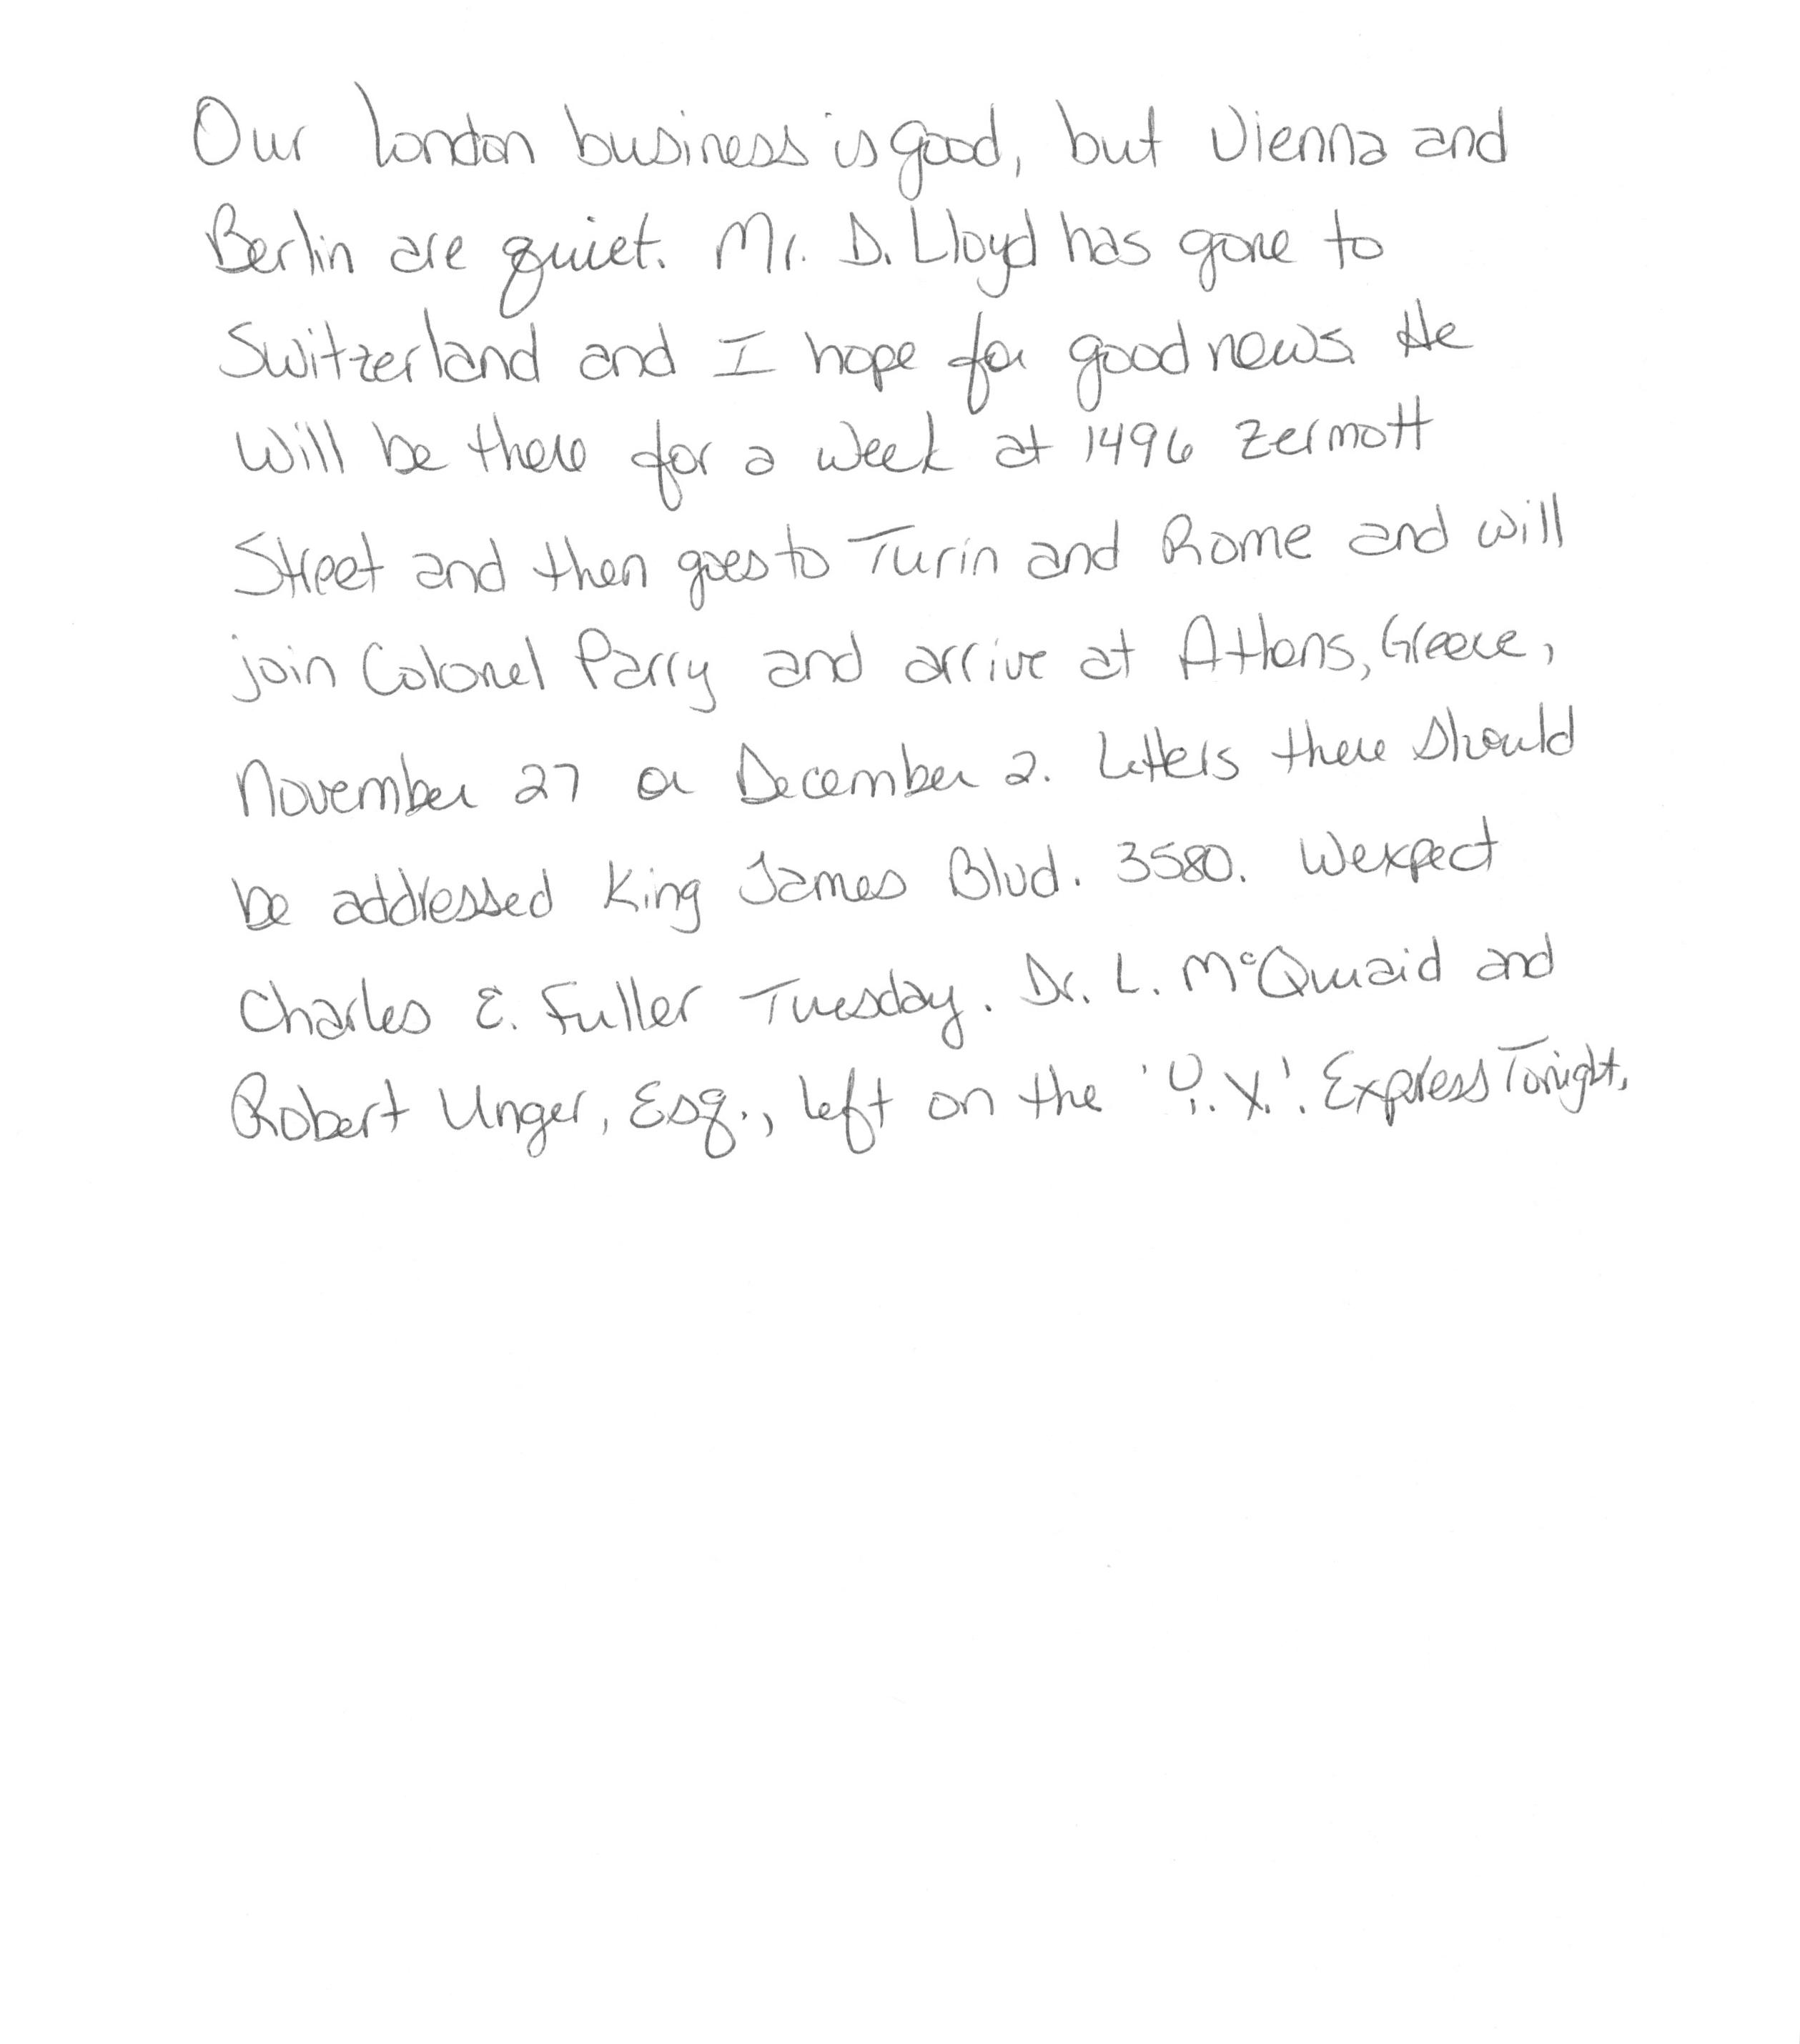 Our London business is good, but Vienna and
Berlin are quiet. Mr. D. Lloyd has gone to
Switzerland and I hope for good news. He
will be there for a week at 1496 Zermott
Street and then goes to Turin and Rome and will
join Colonel Parry and arrive at Athens, Greece,
November 27 or December 2. Letters there should
be addressed King James Blvd. 3580. We expect
Charles E. Fuller Tuesday. Dr. L. McQuaid and
Robert Unger, Esq., left on the 'Y.X.'. Express Tonight.